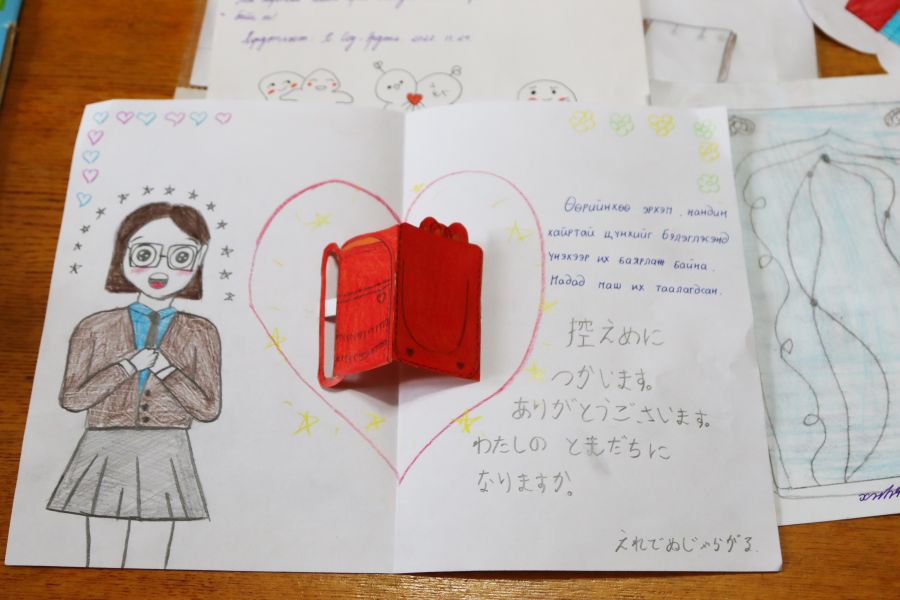 Бат нь
Өөрийнхөө эрхэм, нандин
хайртай цүнхийг бэлэглэсэнд
үнэхээр их баярлаж байна.
Надад маш их таалагдсан.
控えめに
つかじます。
ありがとうございます。
わたしの とまだちに
なりますか。
えれでぬじゃらがる.